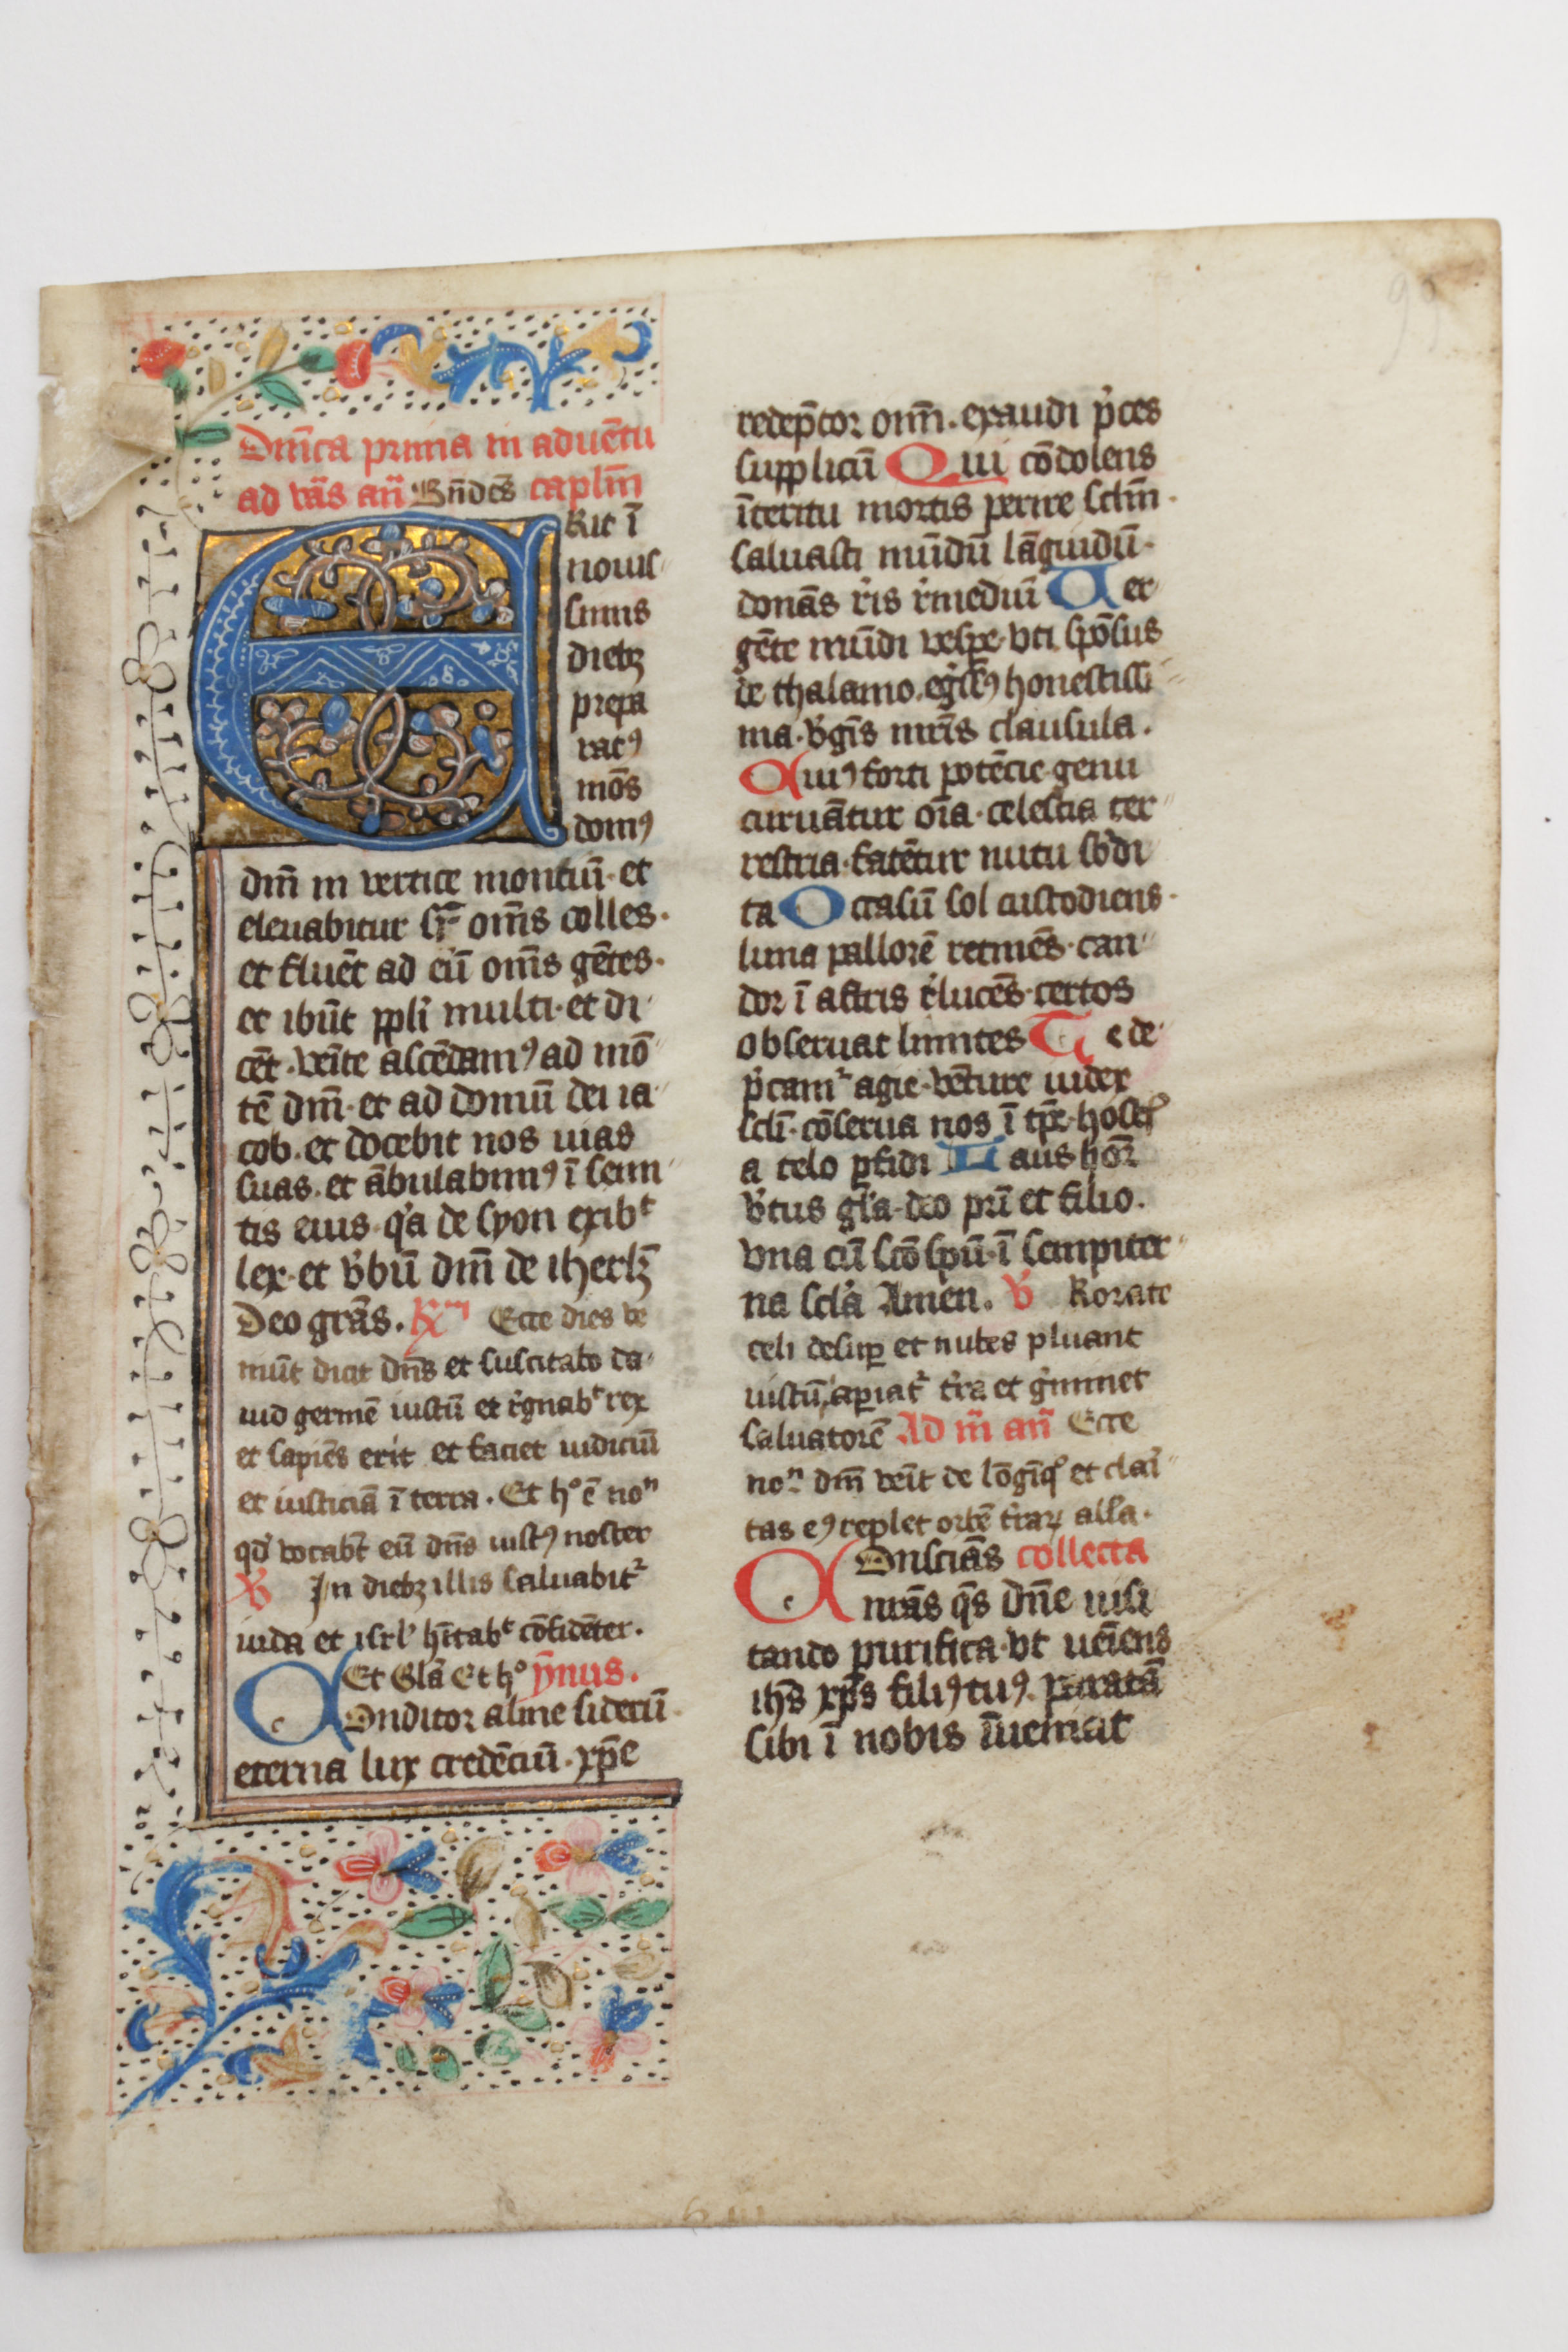 99
Dm̄ca prima in aduētu
ad vās̄ an̄ Bn̄dcēs capl̄m
ERit ī
nouis
simis
diebꝫ
prepa
ratꝰ
mōs
domꝰ
dn̄i in vertice montiū· et
eleuabitur sr̄ om̄s colles·
et fluēt ad eū om̄s gētes·
et ibūt ppl̄i multi· et di
cēt· veīte ascēdamꝰ ad mō
tē dn̄i· et ad domū dei ia
cob· et docebit nos uias
suas· et ābulabimꝰ ī semi
tis eius· qͥa de syon exibᵗ
lex· et v̓bū dn̄i de iherl̄ꝫ
Deo grās̄. Rᵐ Ecce dies ve
niūt dicit dn̄s et suscitabo da
uid germē iustū et r̓gnabᵗ rex
et sapiēs erit et faciet iudiciū
et iusticiā ī terra. Et hᵒ ē noⁿ
qd̓ vocabt̄ eū dn̄s iustꝰ noster
V̓ In diebꝫ illis saluabit᷑
iuda et isrl̓ hītabᵗ cōfidēter.
Et Glā Et hᵒ ȳnus.
COnditor alme siderū
eterna lux credēciū· xp̄e
redēptor om̄· exaudi p̓ces
supplicū Qui cōdolens
īteritu mortis perire sclm̄·
saluasti mūdū lāguidū·
donās r̓is r̓mediū Uer
gēte mūdi vespe· vti spōsus
de thalamo· egr̓ssꝰ honestissi
ma· v̓gīs mr̄is clausula.
Cuiꝰ forti potēcie· genu
curuātur oīa· celestia ter
restria· fatētur nutu sb̓di
ta Occasū sol custodiens·
luna pallorē retinēs· can
dor ī astris r̓lucēs· certos
obseruat limites Te de
p̓cam᷑ agie· vēture iudex
scl̄i· cōserua nos ī tp̄e· hostꝭ
a telo ꝑfidi Laus hōr
v̓tus gl̓a· deo pr̄i et filio.
vna cū scō spū· ī sempiter
na scl̓a Amen. V̓ Rorate
celi desuꝑ et nubes pluant
iustū, aꝑiat᷑ t̓ra et g̓minet
saluatorē Ad m̄ an̄ Ecce
noⁿ dn̄i veīt de lōgīqͦ et clari
tas eꝰ replet orbē t̓raꝝ all̓a.
COnsciās collecta
nr̄ās qs̄ dn̄e uisi
tando purifica· vt ueīens
ih̄s xp̄s filiꝰ tuꝰ. paratā
sibi ī nobis īueniat